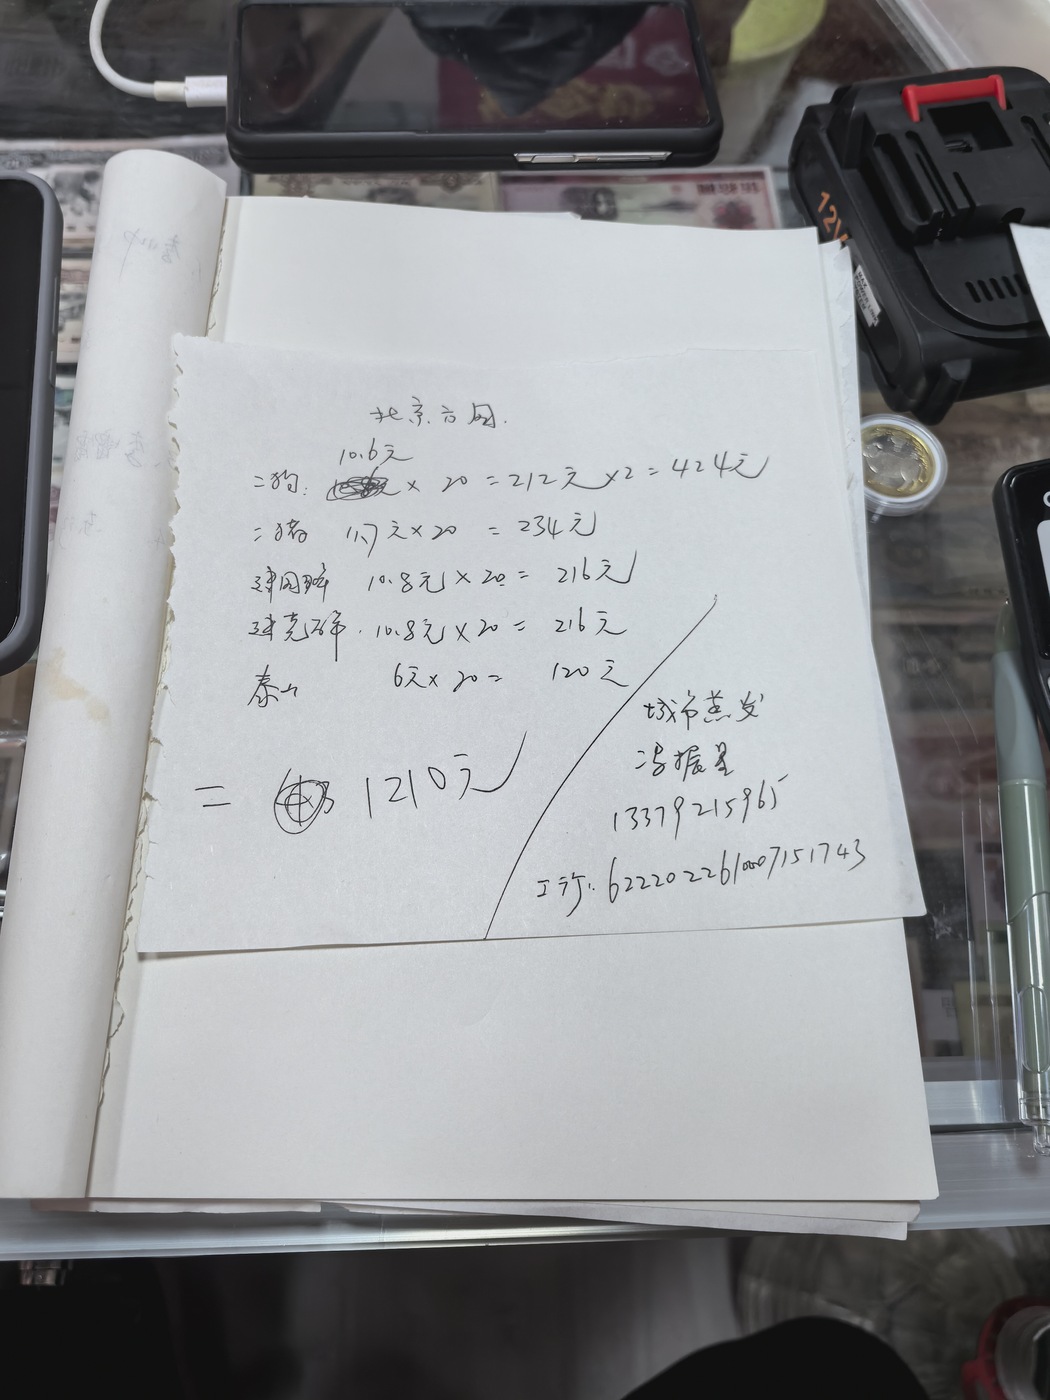 北京六园.
10.6元
二狗: × 20 = 212元 ×2 = 424元
二猪 11.7元×20 = 234元
建国钞 10.8元×20= 216元
建党钞. 10.8元×20= 216元
泰山 6元×20= 120元
= 1210元
城市蒸发
冯振星
13379215965
工行: 6222022610007151743
12V